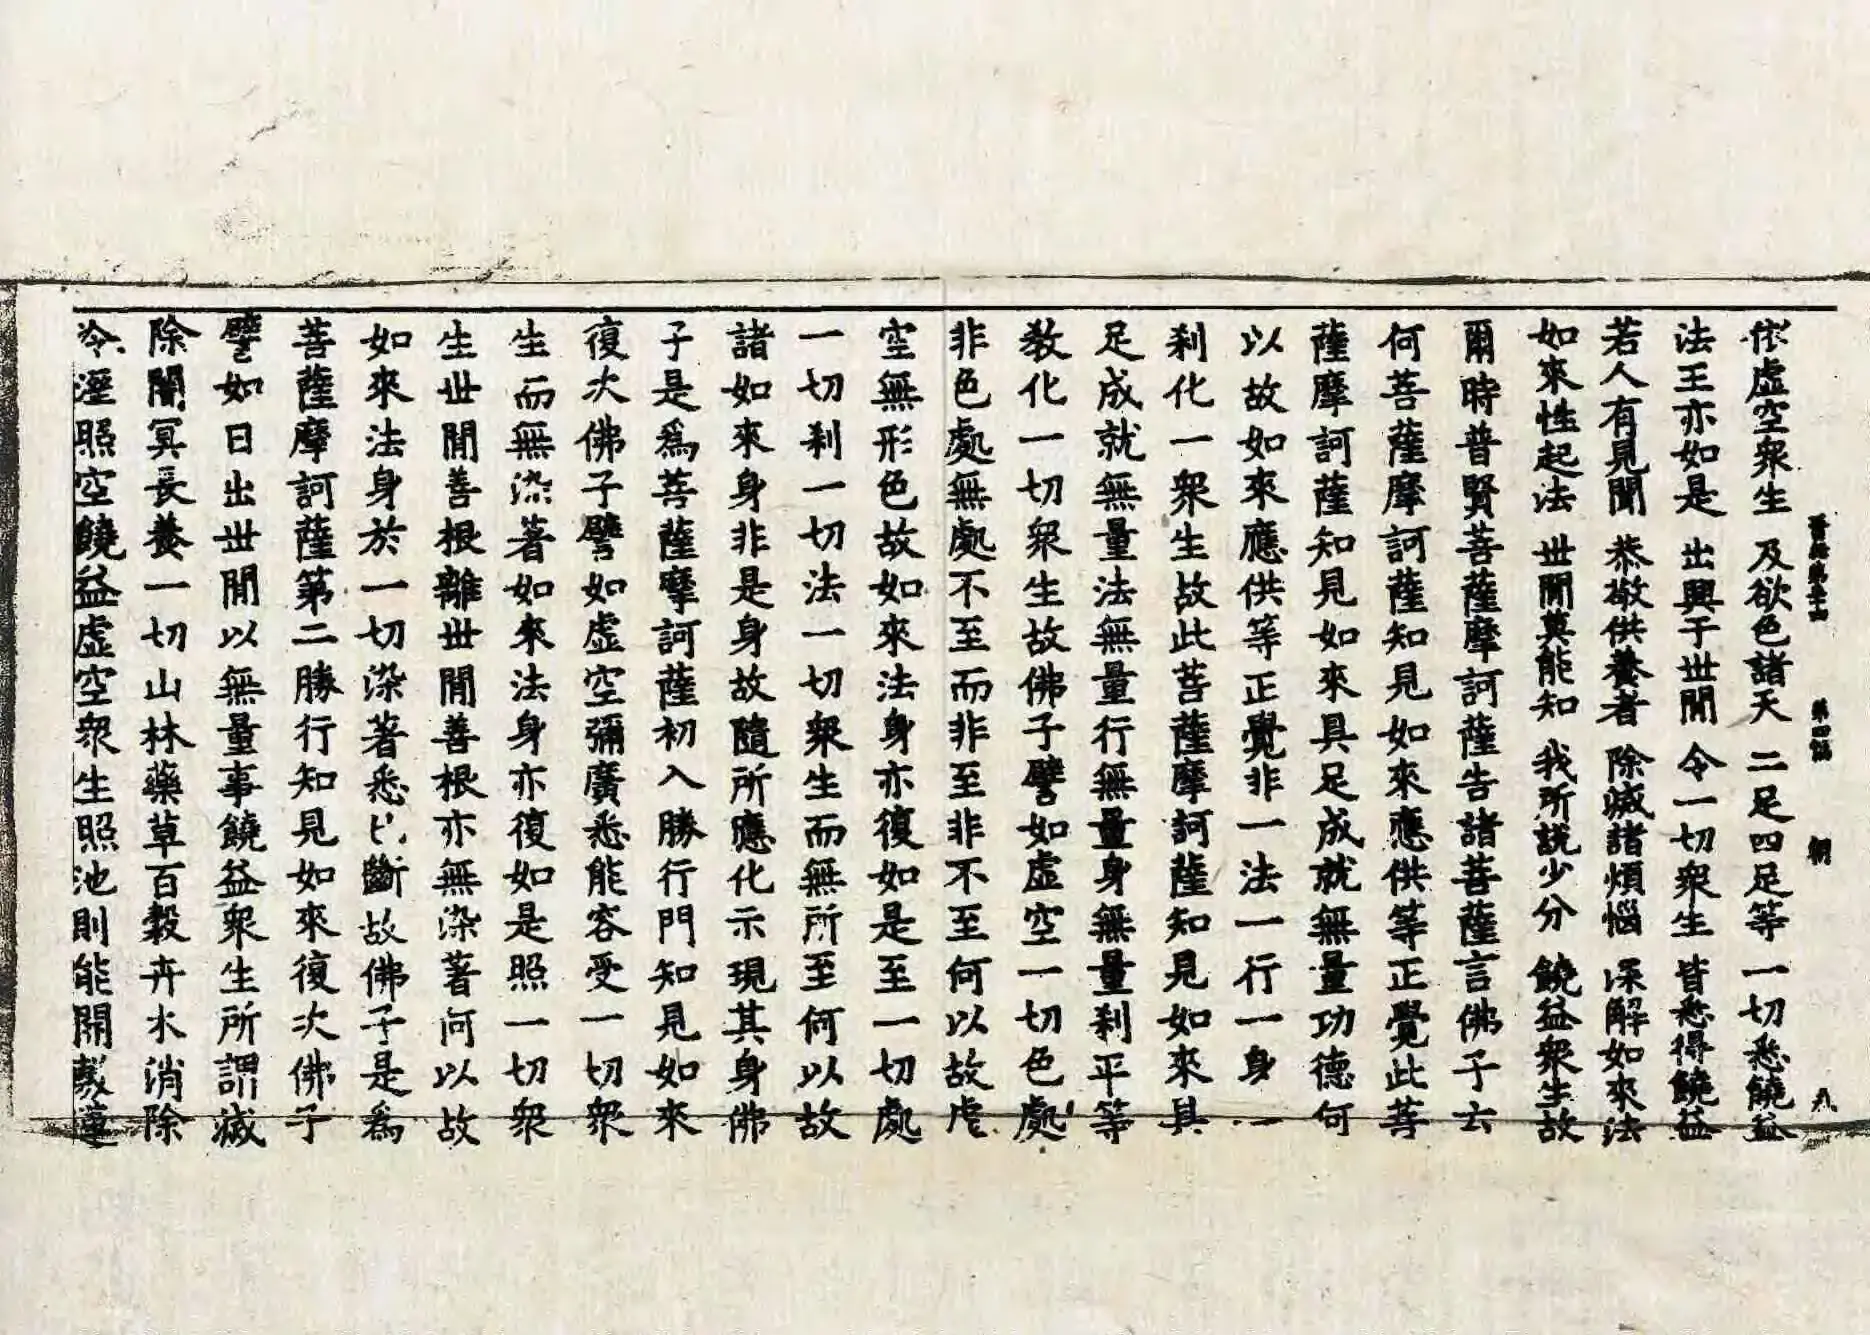 晋經第三十四 第四幅 朝 八
依虛空衆生 及欲色諸天 二足四足等 一切悉饒益
法王亦如是 出興于世間 令一切衆生 皆悉得饒益
若人有見聞 恭敬供養者 除滅諸煩惱 深解如來法
如來性起法 世間莫能知 我所說少分 饒益衆生故
爾時普賢菩薩摩訶薩告諸菩薩言佛子云
何菩薩摩訶薩知見如來應供等正覺此菩
薩摩訶薩知見如來具足成就無量功德何
以故如來應供等正覺非一法一行一身一
刹化一衆生故此菩薩摩訶薩知見如來具
足成就無量法無量行無量身無量刹平等
教化一切衆生故佛子譬如虛空一切色處
非色處無處不至而非至非不至何以故虛
空無形色故如來法身亦復如是至一切處
一切刹一切法一切衆生而無所至何以故
諸如來身非是身故隨所應化示現其身佛
子是爲菩薩摩訶薩初入勝行門知見如來
復次佛子譬如虛空彌廣悉能容受一切衆
生而無染著如來法身亦復如是照一切衆
生世間善根離世間善根亦無染著何以故
如來法身於一切染著悉已斷故佛子是爲
菩薩摩訶薩第二勝行知見如來復次佛子
譬如日出世間以無量事饒益衆生所謂滅
除闇冥長養一切山林藥草百穀卉木消除
冷溼照空饒益虛空衆生照池則能開敷蓮